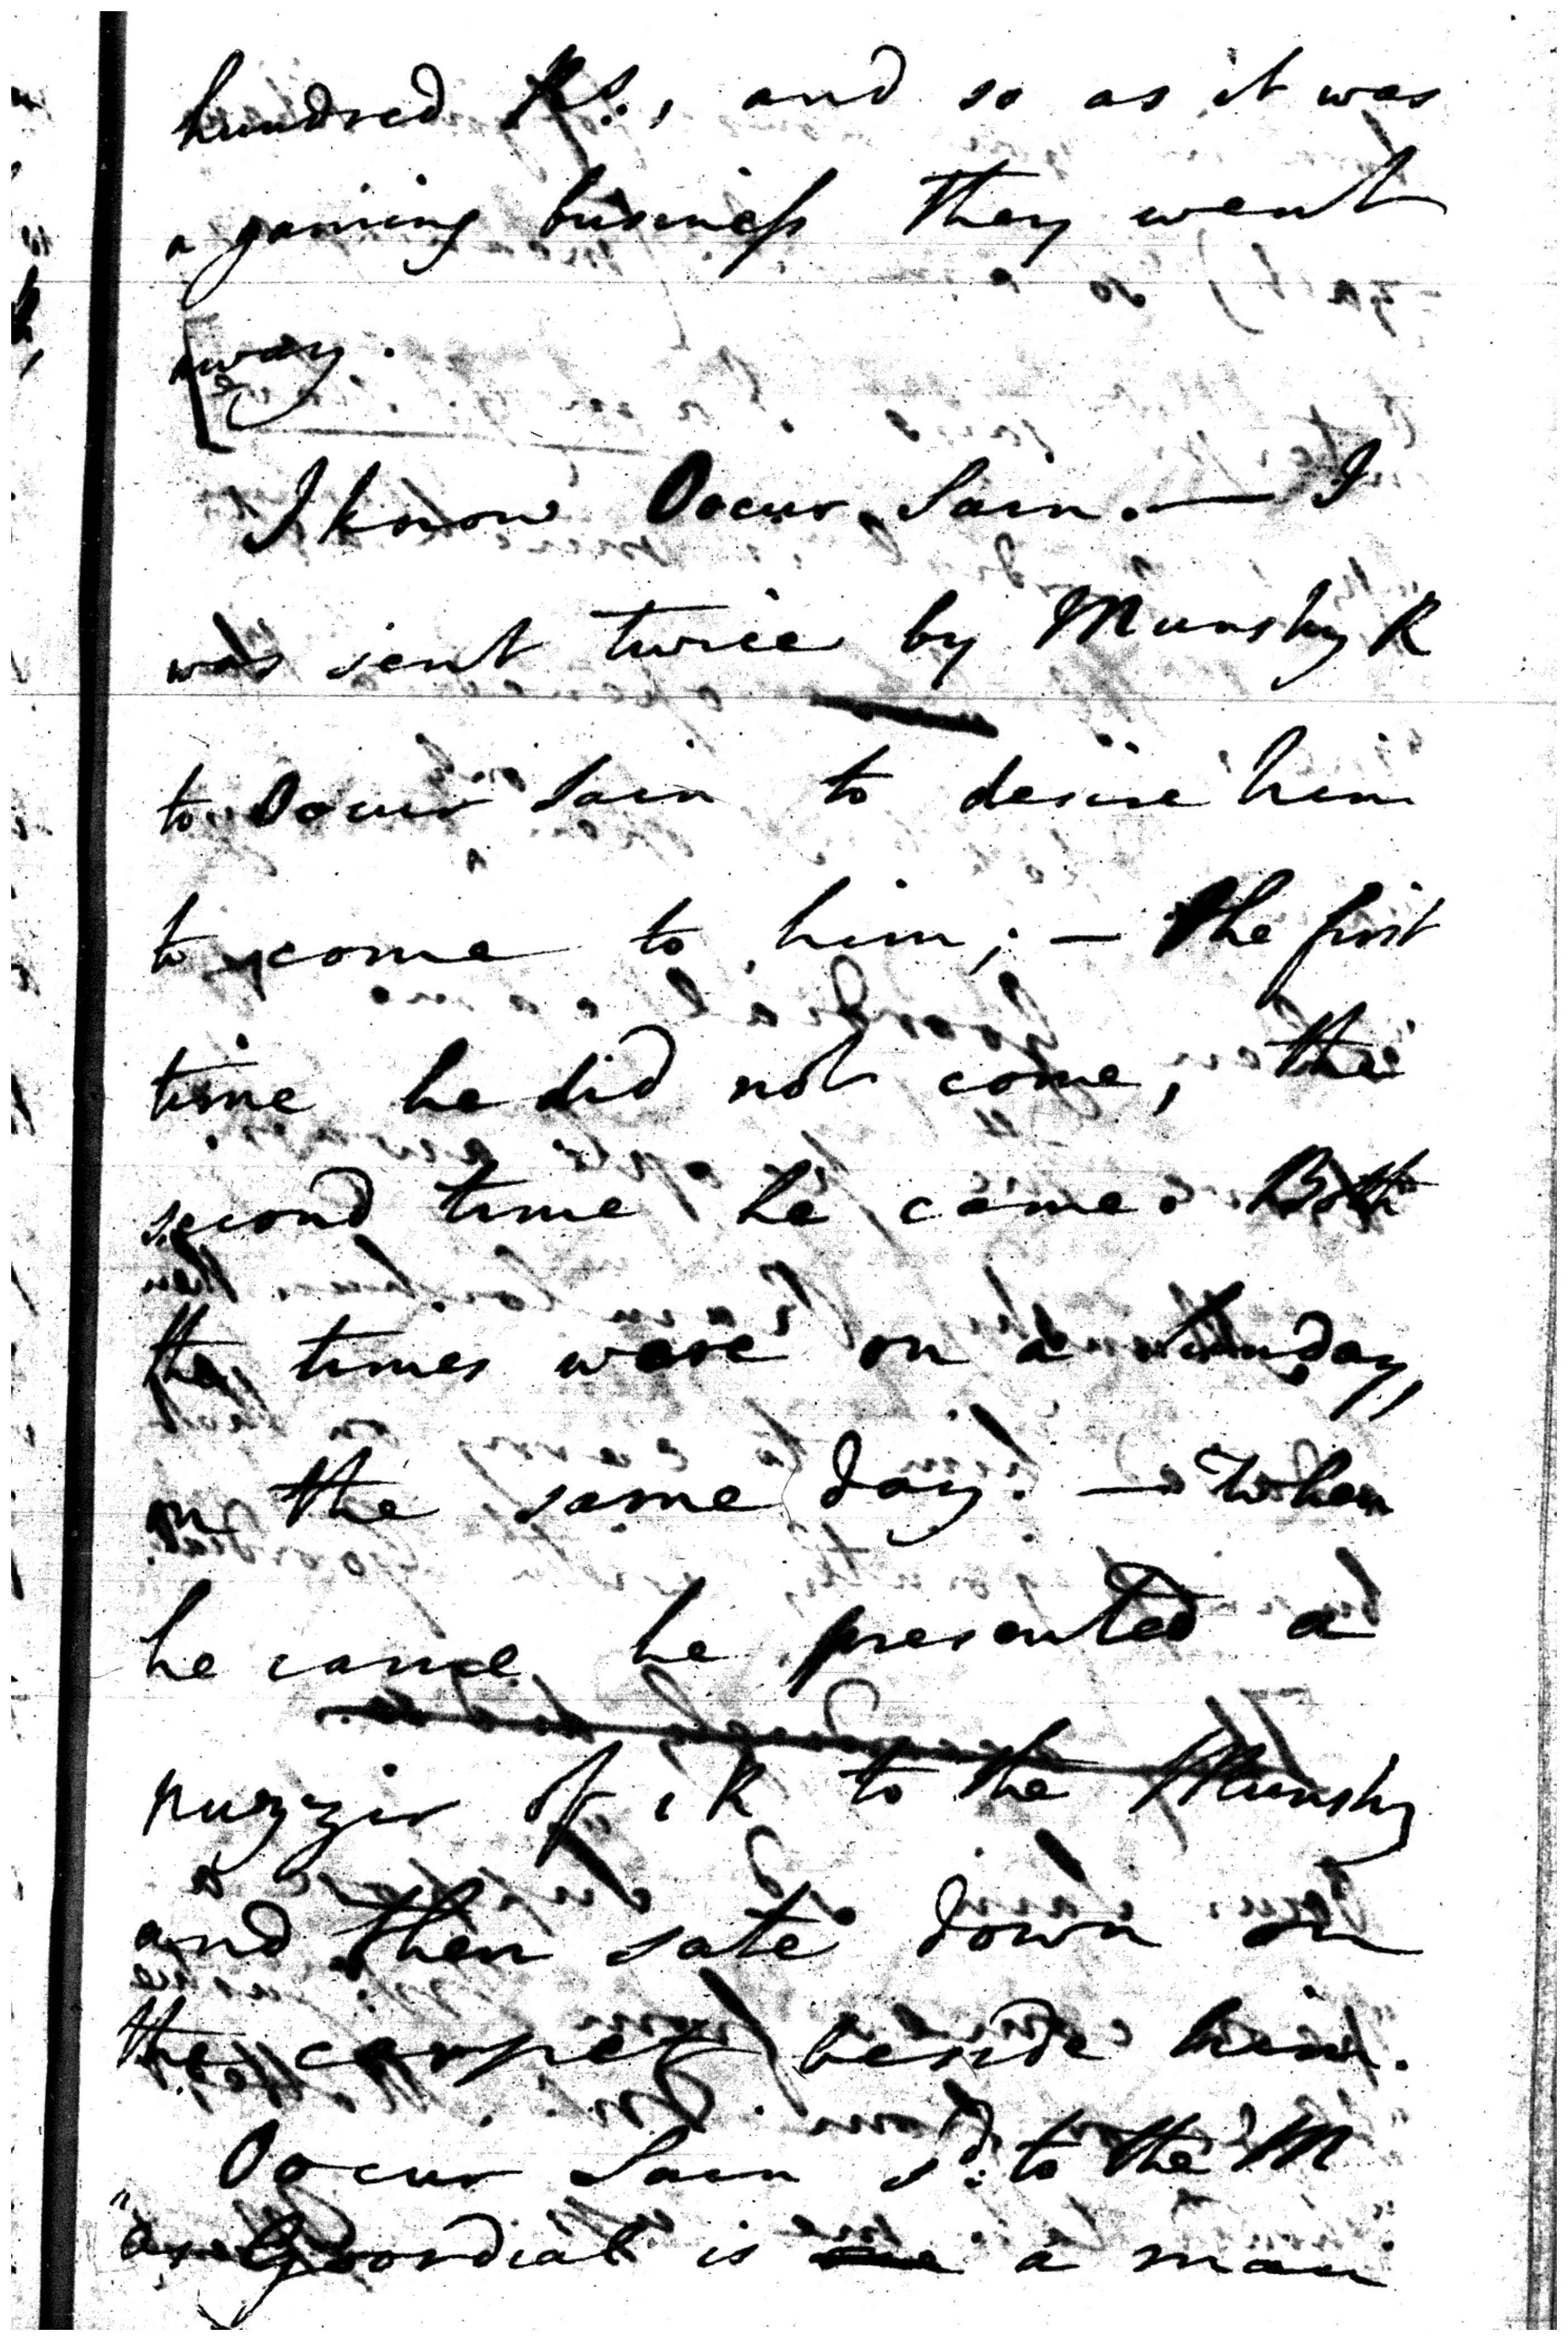 hundred Rs., and so as it was
a gaming business they went
away.
I know Oocur Sain. — I
was sent twice by Munshy R
to Oocur Sain to desire him
to come to him; — The first
time he did not come, the
second time he came. Both
the times were on a
on the same day. — When
he came he presented a
nuzzir of 1 R to the Munshy
and then sate down on
the carpet beside him.
Oocur Sain sd. to the M
"as Goordial is a man